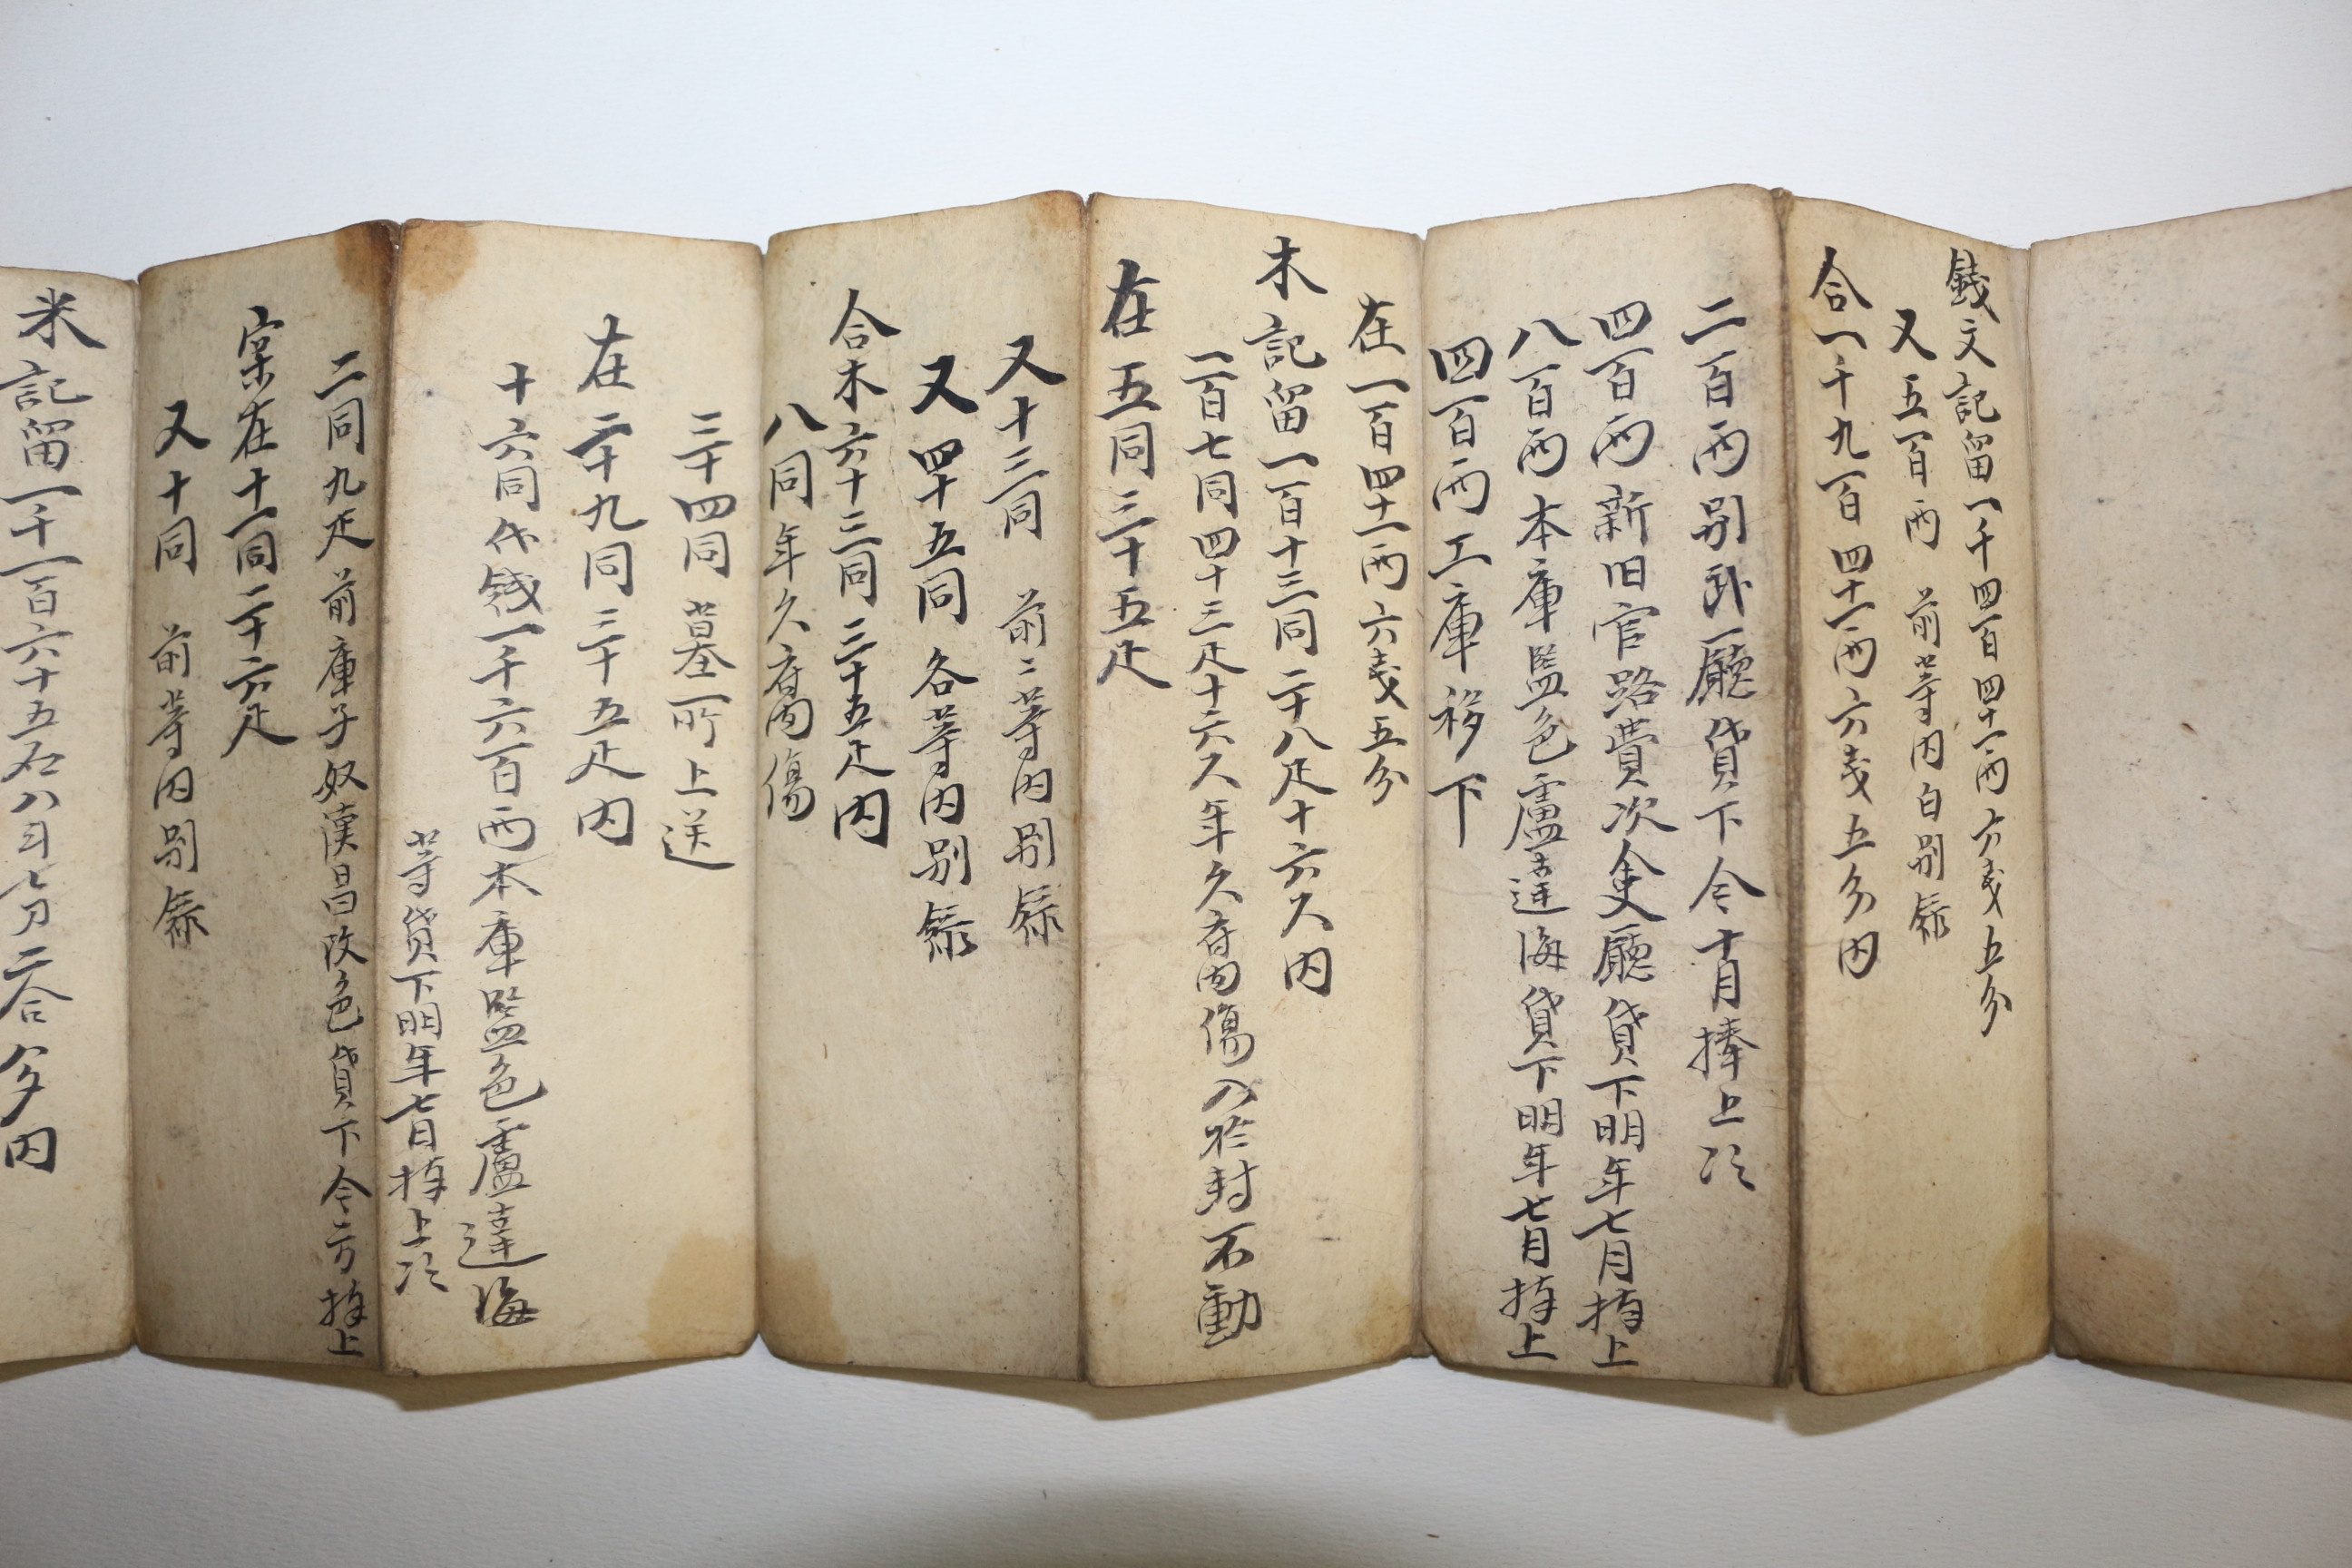 錢文記留一千四百四十一両六戔五分
又五百両 前等内白別錄
合一千九百四十一両六戔五分内
二百両別 廳貸下今十月捧上次
四百両新旧官路費次吏廳貸下明年七月捧上
八百両本庫監色盧達海貸下明年七月捧上
四百両工庫移下
在一百四十一両六戔五分
木記留一百十三同二十八疋十六尺内
一百七同四十三疋十六尺年久腐傷入於封不動
在五同三十五疋
又十三同 前前等内別錄
又四十五同各等内別錄
合木六十三同三十五疋内
八同年久腐傷
三十四同墓所上送
在二十九同三十五疋内
十六同代錢一千六百両本庫監色盧達海
等貸下明年七月捧上次
二同九疋前庫子奴漢昌改色貸下今方捧上
宲在十一同二十六疋
又十同 前等内別錄
米記留一千一百六十五石八斗七刀二合夕内